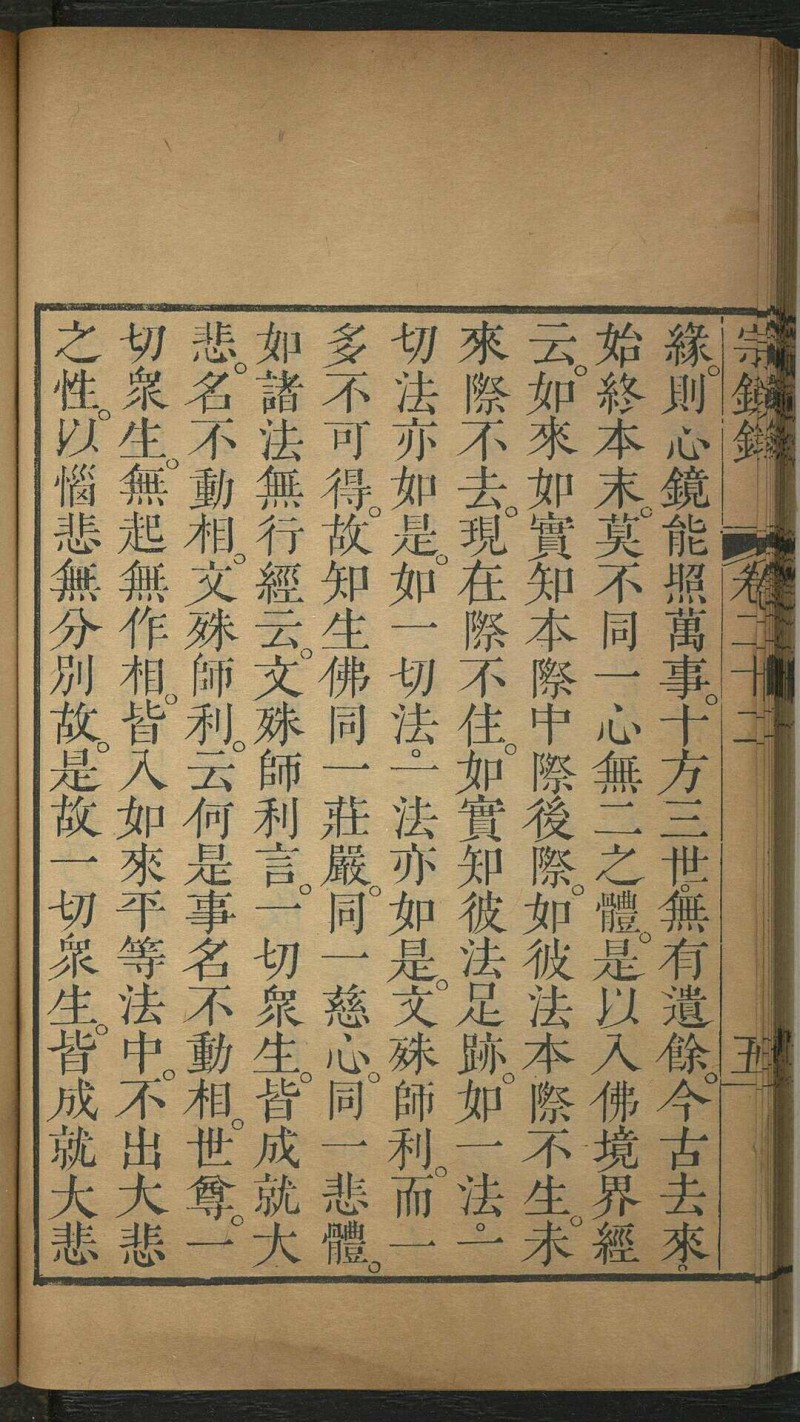 宗鏡錄 卷二十二 五
緣。則心鏡能照萬事。十方三世。無有遺餘。今古去來。
始終本末。莫不同一心無二之體。是以入佛境界經
云。如來如實知本際中際後際。如彼法本際不生。未
來際不去。現在際不住。如實知彼法足跡。如一法。一
切法亦如是。如一切法。一法亦如是。文殊師利。而一
多不可得。故知生佛同一莊嚴。同一慈心。同一悲體。
如諸法無行經云。文殊師利言。一切衆生。皆成就大
悲。名不動相。文殊師利。云何是事名不動相。世尊。一
切衆生。無起無作相。皆入如來平等法中。不出大悲
之性。以惱悲無分別故。是故一切衆生。皆成就大悲